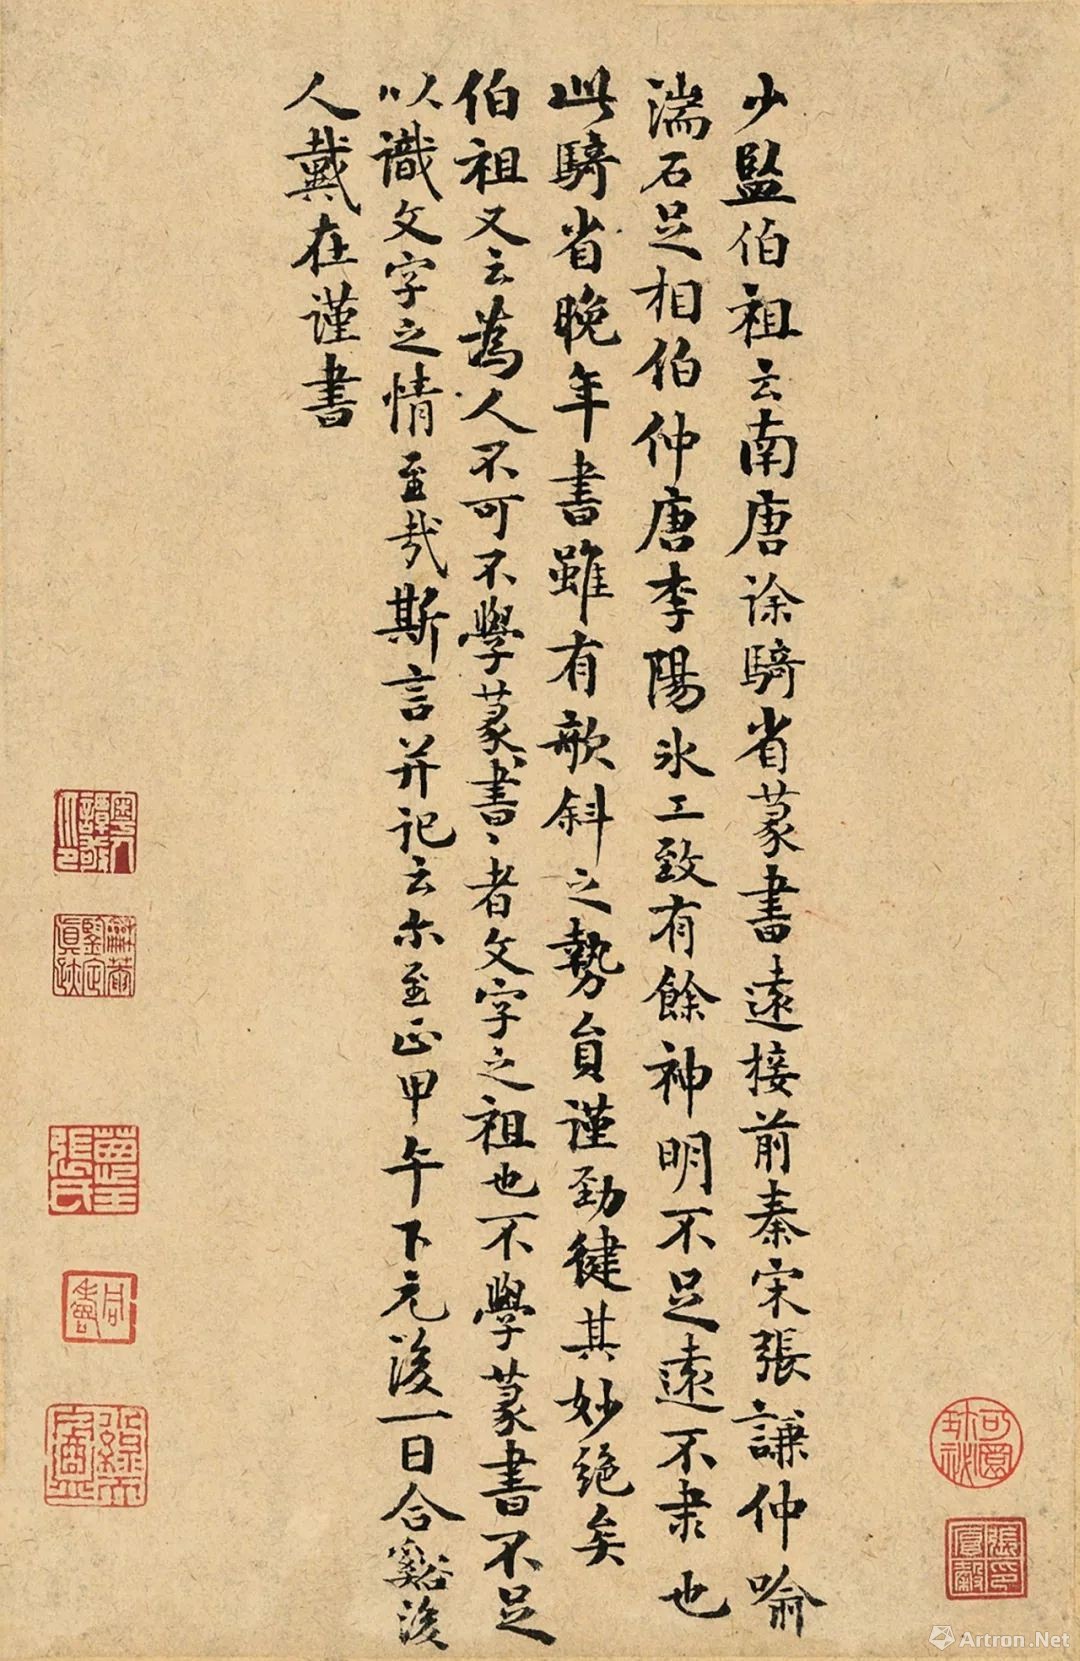 少監伯祖云南唐徐騎省篆書遠接前秦宋張謙仲喻
湍石足相伯仲唐李陽氷工致有餘神明不足遠不隶也
此騎省晚年書雖有欹斜之勢員謹勁健其妙絶矣
伯祖又云為人不可不學篆書〻者文字之祖也不學篆書不足
以識文字之情至哉斯言并記云尒至正甲午下元後一日合谿後
人戴在謹書
張氏
張印
Artron.Net